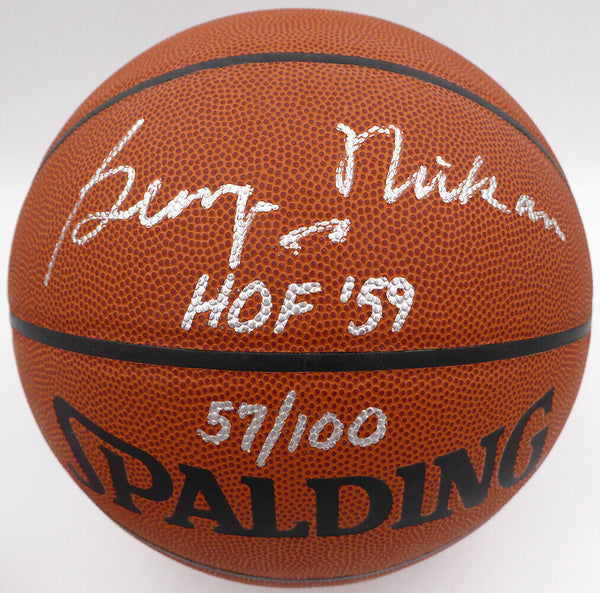 George Mikan
HOF '59
57/100
SPALDING